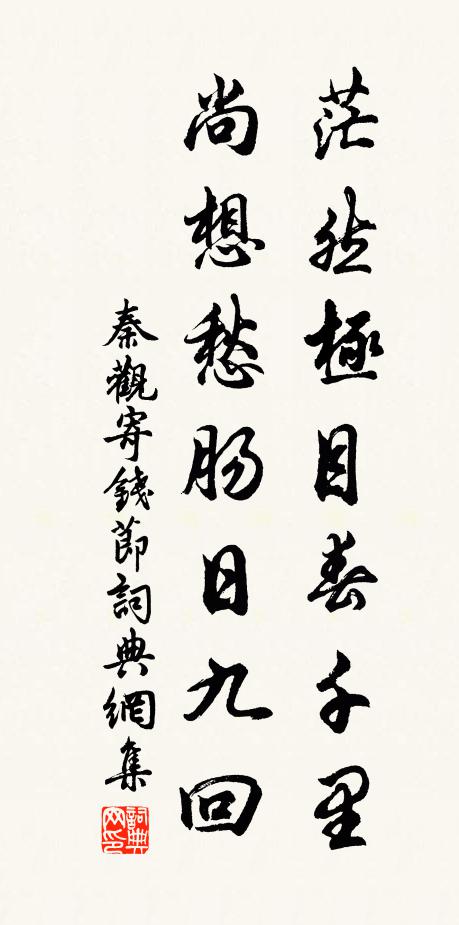 茫然極目春千里
尚想愁腸日九回
秦觀寄錢節詞典網集
詞典网印